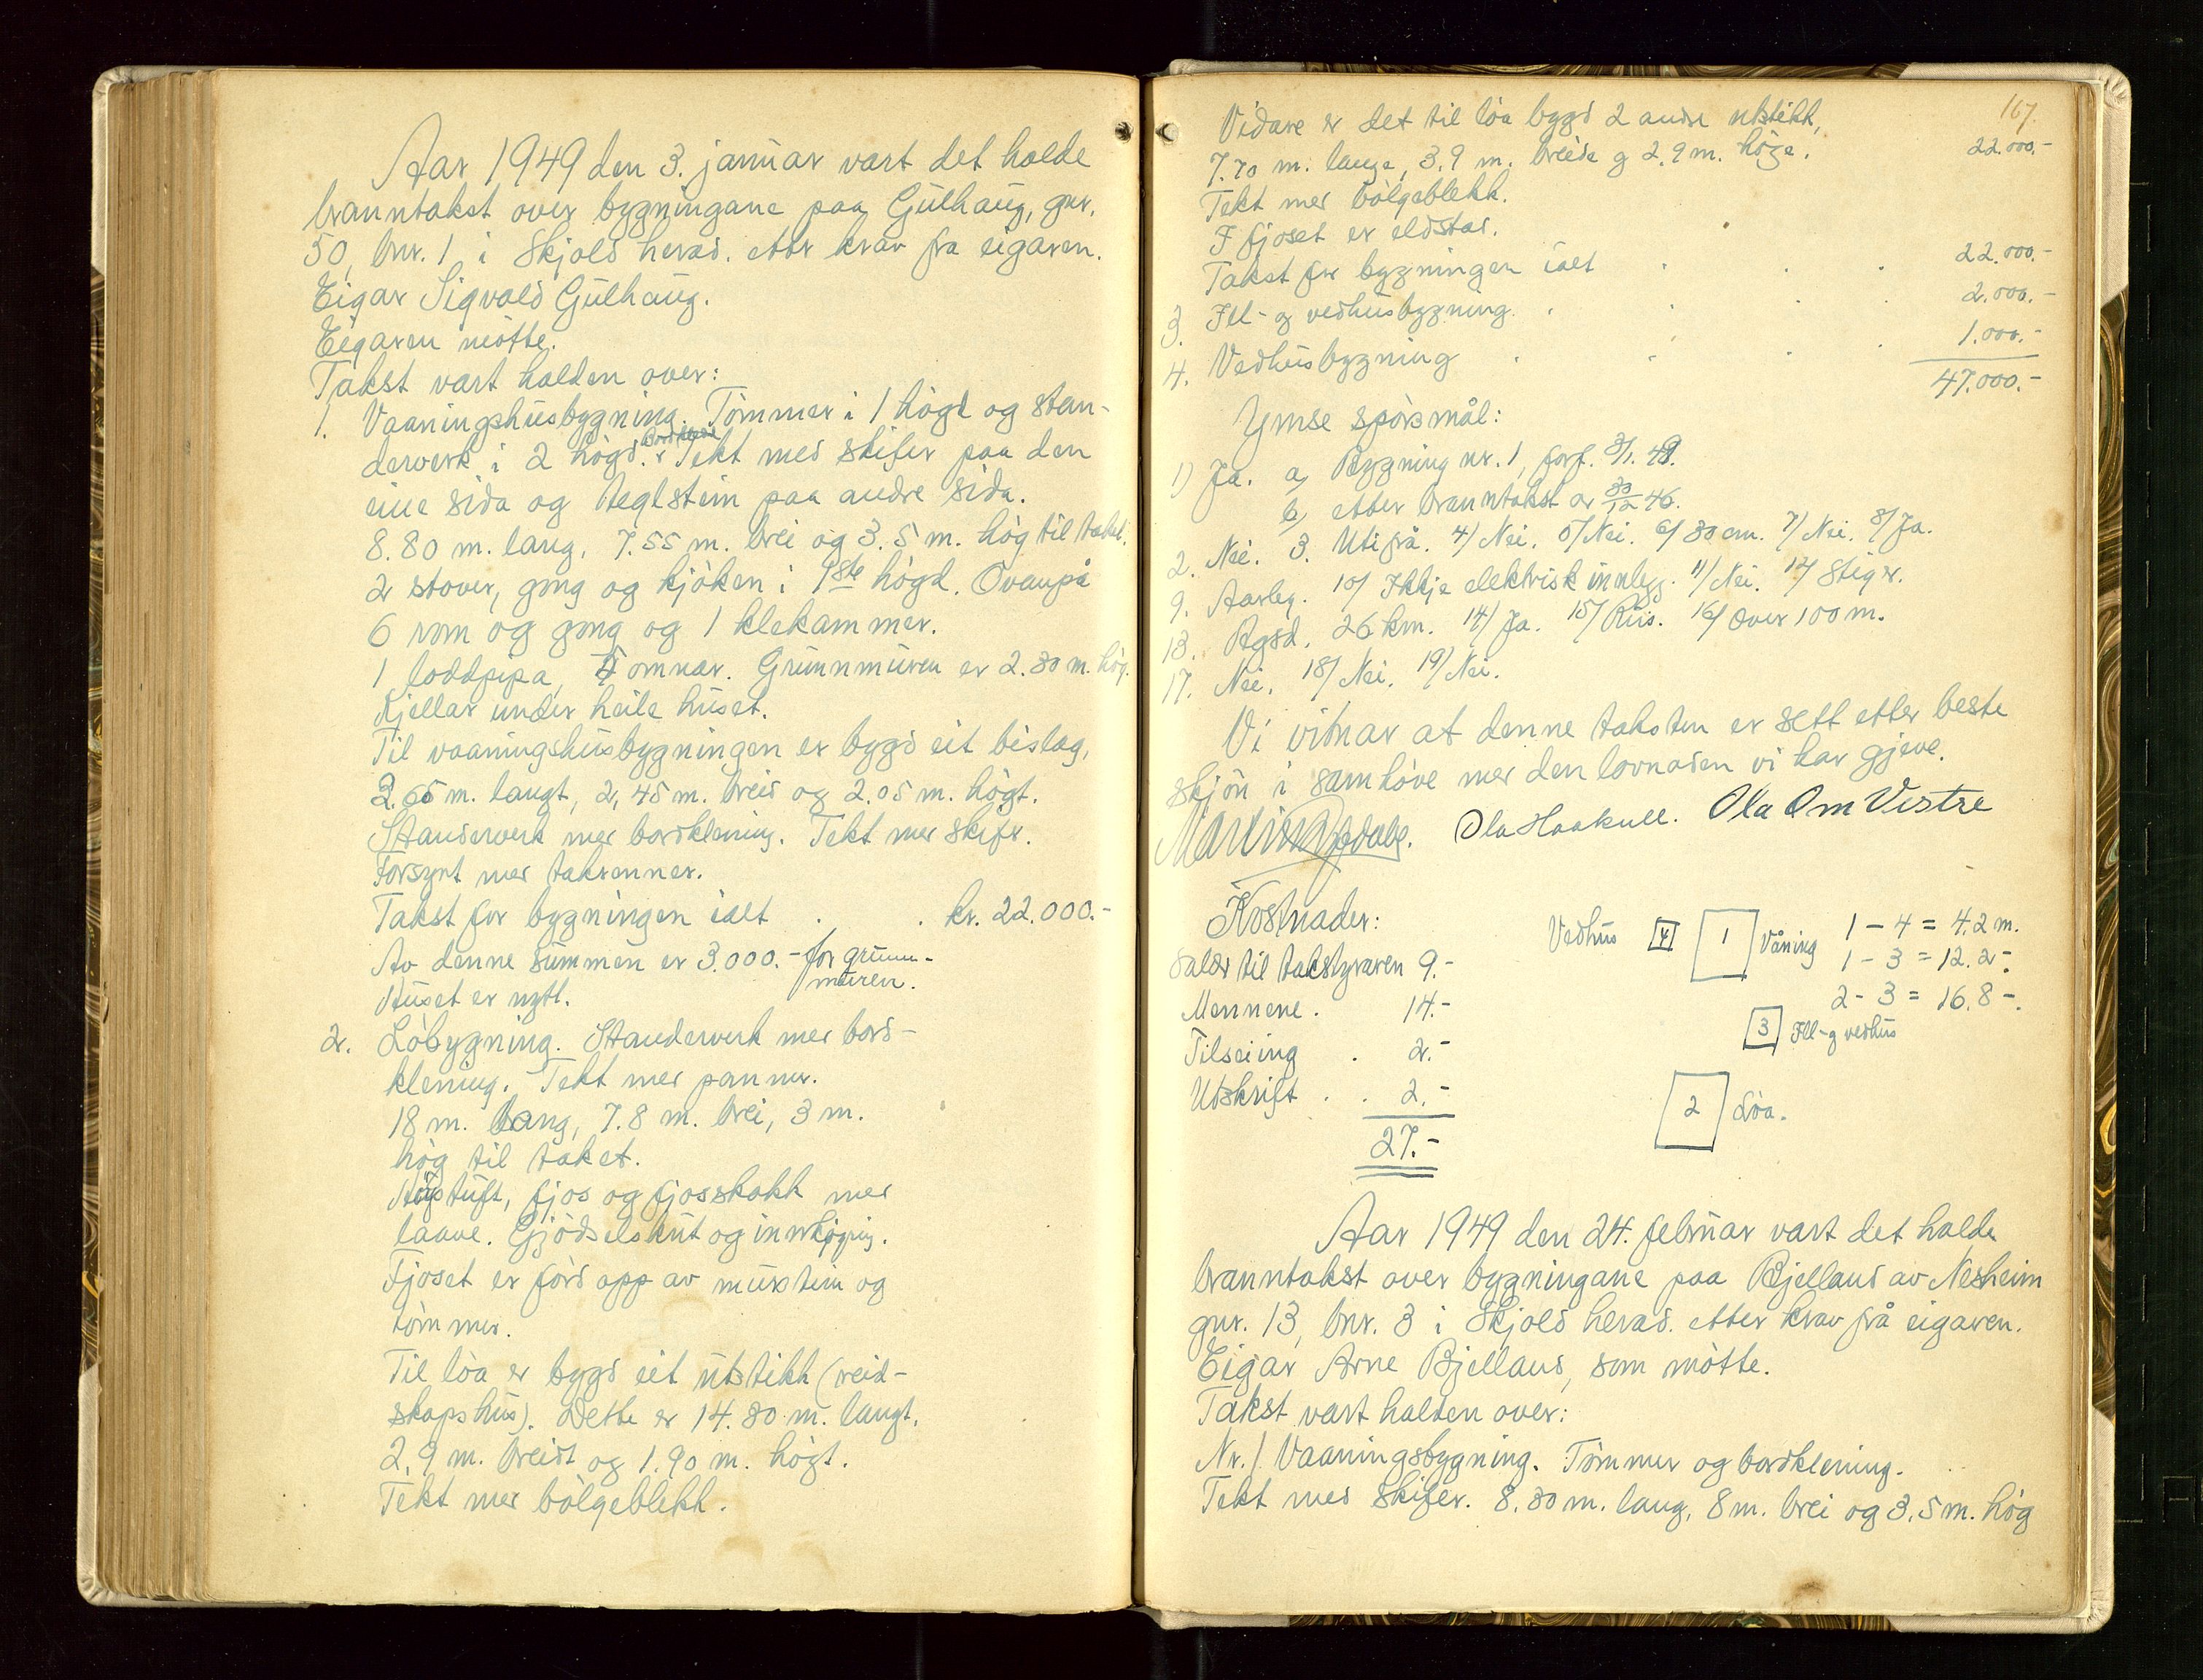 Aar 1949 den 3. januar vart det halde
branntakst over bygningane paa Gulhaug, gnr.
50, bnr. 1 i Skjold herad. etter krav fra eigaren.
Eigar Sigvald Gulhaug.
Eigaren møtte.
Takst vart halden over:
1. Vaaningshusbygning. Tømmer i 1 høgd og stan-
derverk i 2 høgd. Tekt med skifer paa den
eine sida og teglstein paa andre sida.
8.80 m. lang, 7.55 m. brei og 3.5 m. høg til taket.
2 stover, gong og kjøken i 1ste høgd. Ovanpå
6 rom og gong og 1 klekammer.
1 loddpipa, 4 omnar. Grunnmuren er 2.30 m. høg.
Kjellar under heile huset.
Til vaaningshusbygningen er bygd eit bislag,
3.65 m. langt, 2,45 m. breid og 2.05 m. høgt.
Standerverk med bordklening. Tekt med skifer.
Forsynt med takrenner.
Takst for bygningen ialt . . kr. 22.000.-
Av denne summen er 3.000.- for grunn-
muren.
Huset er nytt.
2. Løbygning. Standerverk med bord-
klening. Tekt med panner.
18 m. lang, 7.8 m. brei, 3 m.
høg til taket.
Høystuft, fjos og fjosskokk med
laave. Gjødselskut og innkøyring.
Fjoset er ført opp av murstein og
tømmer.
Til løa er bygd eit utstikk (reid-
skapshus). Dette er 14.30 m. langt,
2,9 m. breidt og 1.90 m. høgt.
Tekt med bølgeblekk.
167.
Vidare er det til løa bygd 2 andre utstikk,
7.70 m. lange, 3.9 m. breide og 2.9 m. høge. 22.000.-
Tekt med bølgeblekk.
I fjoset er eldstad.
Takst for bygningen ialt . . . 22.000.-
3. Ill- og vedhusbygning. . . . 2.000.-
4. Vedhusbygning . . . . 1.000.-
47.000.-
Ymse spørsmål:
1) Ja. a, Bygning nr. 1, forf. 3/1. 49.
b, etter branntakst av 30/12 46.
2. Nei. 3. Utifrå. 4/ Nei. 5/ Nei. 6/ 30 cm. 7/ Nei. 8/ Ja.
9. Aarleg. 10/ Ikkje elektrisk innlegg. 11/ Nei. 12/ Stiger.
13. Bygd. 26 km. 14/ Ja. 15/ Hus. 16/ Over 100 m.
17. Nei. 18/ Nei. 19/ Nei.
Vi vitnar at denne taksten er sett etter beste
skjøn i samhøve med den lovnaden vi har gjeve.
Ola Haakull. Ola Om Vestre
Kostnader:
Salær til takstgivaren 9.-
Mennene . 14.-
Tilseiing . 2.-
Utskrift . . 2.-
27.-
Vedhus 4 1 Våning
1 - 4 = 4.2 m.
1 - 3 = 12.2 -.
2 - 3 = 16.8 -.
3 Ill- og vedhus
2 Løa.
Aar 1949 den 24. februar vart det halde
branntakst over bygningane paa Bjelland av Nesheim
gnr. 13, bnr. 3 i Skjold herad. etter krav frå eigaren.
Eigar Arne Bjelland, som møtte.
Takst vart halden over:
Nr. 1. Vaaningsbygning. Tømmer og bordklening.
Tekt med skifer. 8.30 m. lang, 8 m. brei og 3.5 m. høg